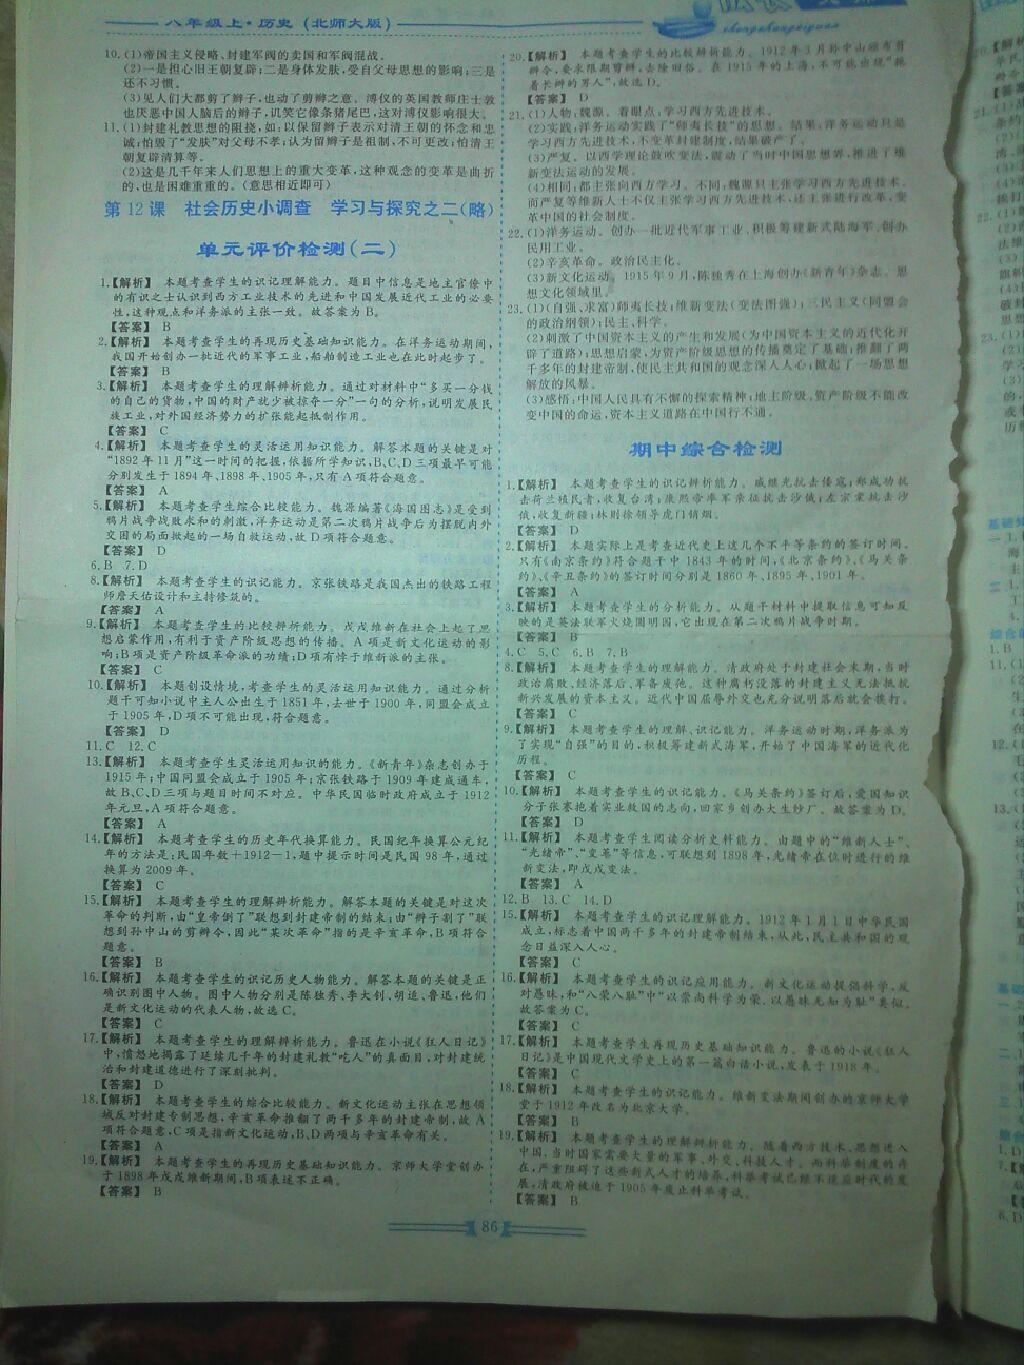 八年级上·历史(北师大版)
10.(1)帝国主义侵略、封建军阀的卖国和军阀混战。
(2)一是担心旧王朝复辟;二是身体发肤,受自父母思想的影响;三是
还不习惯。
(3)见人们大都剪了辫子,也动了剪辫之意。溥仪的英国教师庄士敦
也厌恶中国人脑后的辫子,讥笑它像条猪尾巴,这对溥仪影响很大。
11.(1)封建礼教思想的阻挠,如:以保留辫子表示对清王朝的怀念和忠
诚;怕毁了“发肤”对父母不孝;认为留辫子是祖制,不可更改;怕清王
朝复辟清算等。
(2)这是几千年来人们思想上的重大变革,这种观念的变革是曲折
的,也是困难重重的。(意思相近即可)
第12课 社会历史小调查 学习与探究之二(略)
单元评价检测(二)
1.【解析】 本题考查学生的识记理解能力。题目中信息是地主官僚中
的有识之士认识到西方工业技术的先进和中国发展近代工业的必要
性,这种观点和洋务派的主张一致。故答案为B。
【答案】 B
2.【解析】 本题考查学生的再现历史基础知识能力。在洋务运动期间,
我国开始创办一批近代的军事工业,船舶制造工业也在此时起步了。
【答案】 B
3.【解析】 本题考查学生的理解辨析能力。通过对材料中“多买一分钱
的自己的货物,中国的财产就少被掠夺一分”一句的分析,说明发展民
族工业,对外国经济势力的扩张能起抵制作用。
【答案】 C
4.【解析】 本题考查学生的灵活运用知识能力。解答本题的关键是对
“1892年11月”这一时间的把握,依据所学知识,B、C、D三项最早可能
分别发生于1894年、1898年、1905年,只有A项符合题意。
【答案】 A
5.【解析】 本题考查学生综合比较能力。魏源编著《海国图志》是受到
鸦片战争战败求和的刺激,洋务运动是第二次鸦片战争后为摆脱内外
交困的局面掀起的一场自救运动,故D项符合题意。
【答案】 D
6.B 7.D
8.【解析】 本题考查学生的识记能力。京张铁路是我国杰出的铁路工程
师詹天佑设计和主持修筑的。
【答案】 A
9.【解析】 本题考查学生的比较辨析能力。戊戌维新在社会上起了思
想启蒙作用,有利于资产阶级思想的传播。A项是新文化运动的影
响;B项是资产阶级革命派的功绩;D项有悖于维新派的主张。
【答案】 C
10.【解析】 本题创设情境,考查学生的灵活运用知识能力。通过分析
题干可知小说中主人公出生于1851年,去世于1900年,同盟会成立
于1905年,D项不可能出现,符合题意。
【答案】 D
11.C 12.C
13.【解析】 本题考查学生灵活运用知识的能力。《新青年》杂志创办于
1915年;中国同盟会成立于1905年;京张铁路于1909年建成通车,
故B、C、D三项与题目时间不对应。中华民国临时政府成立于1912
年元旦,A项符合题意。
【答案】 A
14.【解析】 本题考查学生的历史年代换算能力。民国纪年换算公元纪
年的方法是:民国年数+1912-1,题中提示时间是民国98年,通过
换算为2009年。
【答案】 C
15.【解析】 本题考查学生的理解辨析能力。解答本题的关键是对这次
革命的判断,由“皇帝倒了”联想到封建帝制的结束;由“辫子割了”联
想到孙中山的剪辫令,因此“某次革命”指的是辛亥革命,B项符合
题意。
【答案】 B
16.【解析】 本题考查学生的识记历史人物能力。解答本题的关键是正
确识别图中人物。图中人物分别是陈独秀、李大钊、胡适、鲁迅,他们
是新文化运动的代表人物,故选C。
【答案】 C
17.【解析】 本题考查学生的理解辨析能力。鲁迅在小说《狂人日记》
中,愤怒地揭露了延续几千年的封建礼教“吃人”的真面目,对封建统
治和封建道德进行了深刻批判。
【答案】 D
18.【解析】 本题考查学生的综合比较能力。新文化运动主张在思想领
域反对封建专制思想,辛亥革命推翻了两千多年的封建帝制,故A
项符合题意,C项是指新文化运动,B、D两项与辛亥革命有关。
【答案】 A
19.【解析】 本题考查学生的再现历史基础知识能力。京师大学堂创办
于1898年戊戌维新期间,B项表述不正确。
【答案】 B
20.【解析】 本题考查学生的比较辨析能力。1912年3月孙中山颁布剪
辫令,要求限期剪辫,去除旧俗。在1915年的上海,不可能出现“拖
着长辫的男人”,故选D。
【答案】 D
21.(1)人物:魏源。着眼点:学习西方先进技术。
(2)实践:洋务运动实践了“师夷长技”的思想。结果:洋务运动只是
学习西方先进技术,不变革封建制度,结果破产了。
(3)严复。以西学理论鼓吹变法,震动了当时中国思想界,推进了维
新变法运动的发展。
(4)相同:都主张向西方学习。不同:魏源只主张学习西方先进技术,
而严复等维新人士不仅主张学习西方先进技术,还主张进行改革,变
革中国的社会制度。
22.(1)洋务运动。创办一批近代军事工业,积极筹建新式陆海军,创办
民用工业。
(2)辛亥革命。政治民主化。
(3)新文化运动。1915年9月,陈独秀在上海创办《新青年》杂志。思
想文化领域里。
23.(1)(自强、求富)师夷长技;维新变法(变法图强);三民主义(同盟会
的政治纲领);民主、科学。
(2)刺激了中国资本主义的产生和发展(为中国资本主义的近代化开
辟了道路);思想启蒙,为资产阶级思想的传播奠定了基础;推翻了两
千多年的封建帝制,使民主共和国的观念深入人心;掀起了一场思想
解放的风暴。
(3)感悟:中国人民具有不懈的探索精神;地主阶级、资产阶级不能改
变中国的命运,资本主义道路在中国行不通。
期中综合检测
1.【解析】 本题考查学生的识记辨析能力。戚继光抗击倭寇;郑成功抗
击荷兰殖民者,收复台湾;康熙帝率军亲征抗击沙俄;左宗棠抗击沙
俄,收复新疆;林则徐领导虎门销烟。
【答案】 D
2.【解析】 本题实际上是考查近代史上这几个不平等条约的签订时间。
只有《南京条约》符合题干中1843年的时间,《北京条约》、《马关条
约》、《辛丑条约》的签订时间分别是1860年、1895年、1901年。
【答案】 A
3.【解析】 本题考查学生的分析能力。从题干材料中提取信息可知反
映的是英法联军火烧圆明园,它出现在第二次鸦片战争时期。
【答案】 B
4.C 5.C 6.B 7.B
8.【解析】 本题考查学生的理解能力。清政府处于封建社会末期,当时
政治腐败、经济落后、军备废弛。这种腐朽没落的封建主义无法抵抗
新兴发展的资本主义。近代中国屈辱外交也充分说明落后就会挨打。
【答案】 C
9.【解析】 本题考查学生的理解、识记能力。洋务运动时期,洋务派为
了实现“自强”的目的,积极筹建新式海军,开始了中国海军的近代化
历程。
【答案】 C
10.【解析】 本题考查学生的识记能力。《马关条约》签订后,爱国知识
分子张謇抱着实业救国的志向,回家乡创办大生纱厂。故答案为D。
【答案】 D
11.【解析】 本题考查学生阅读分析史料能力。由题中的“维新人士”、
“光绪帝”、“变革”等信息,可联想到1898年,光绪帝在位时进行的维
新变法,即戊戌变法。
【答案】 A
12.B 13.C 14.D
15.【解析】 本题考查学生的识记理解能力。1912年1月1日中华民国
成立,标志着中国两千多年的封建帝制结束,从此,民主共和国的观
念日益深入人心。
【答案】 C
16.【解析】 本题考查学生的识记应用能力。新文化运动提倡科学,反
对愚昧,和“八荣八耻”中“以崇尚科学为荣,以愚昧无知为耻”类似。
故答案为C。
【答案】 C
17.【解析】 本题考查学生再现历史基础知识能力。鲁迅的小说《狂人
日记》是中国现代文学史上的第一篇白话小说,发表于1918年。
【答案】 C
18.【解析】 本题考查学生的识记能力。维新变法期间创办的京师大学
堂于1912年改名为北京大学。
【答案】 B
19.【解析】 本题考查学生的理解辨析能力。随着西方技术、思想进入
中国,当时国家需要大量的军事、外交、科技人才。而科举制度的存
在,严重阻碍了这些新式人才的培养,科举考试已经不适应时代的发
展,清政府被迫于1905年废止科举考试。
【答案】 B
86